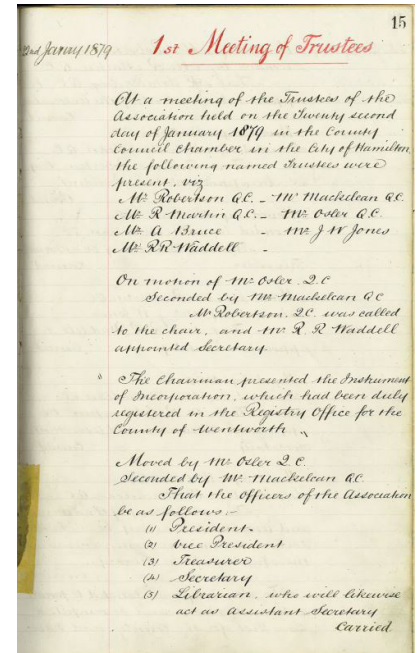 15
22nd January 1879
1st Meeting of Trustees
At a meeting of the Trustees of the
Association held on the Twenty second
day of January 1879 in the County
Council Chamber in the City of Hamilton
the following named Trustees were
present, viz
Mr Robertson Q.C. - Mr Mackelcan Q.C.
Mr R Martin Q.C. - Mr Osler Q.C.
Mr A Bruce - Mr J W Jones
Mr R R Waddell -
On motion of Mr Osler, Q.C
Seconded by Mr Mackelcan Q C
Mr Robertson, Q.C. was called
to the chair, and Mr R R Waddell
appointed Secretary
" The Chairman presented the Instrument
of Incorporation, which had been duly
registered in the Registry Office for the
County of Wentworth
Moved by Mr Osler Q.C.
Seconded by Mr Mackelcan Q.C.
That the officers of the Association
be as follows:-
(1) President.
(2) Vice President
(3) Treasurer
(4) Secretary
(5) Librarian, who will likewise
act as Assistant Secretary
Carried